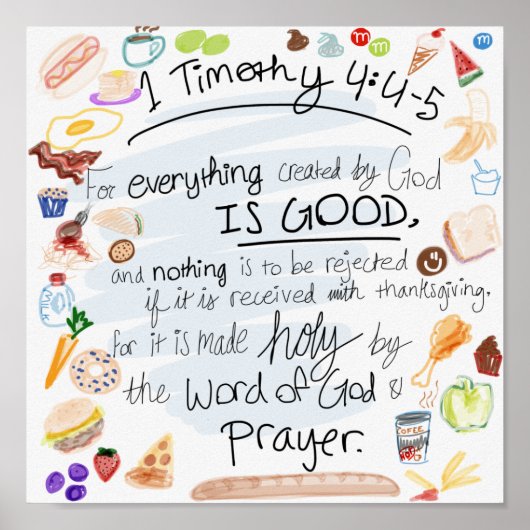 1 Timothy 4:4-5
m
m
For everything created by God
IS GOOD,
and nothing is to be rejected
if it is received with thanksgiving,
for it is made holy by
the Word of God &
Prayer.
MILK
COFEE
HOT